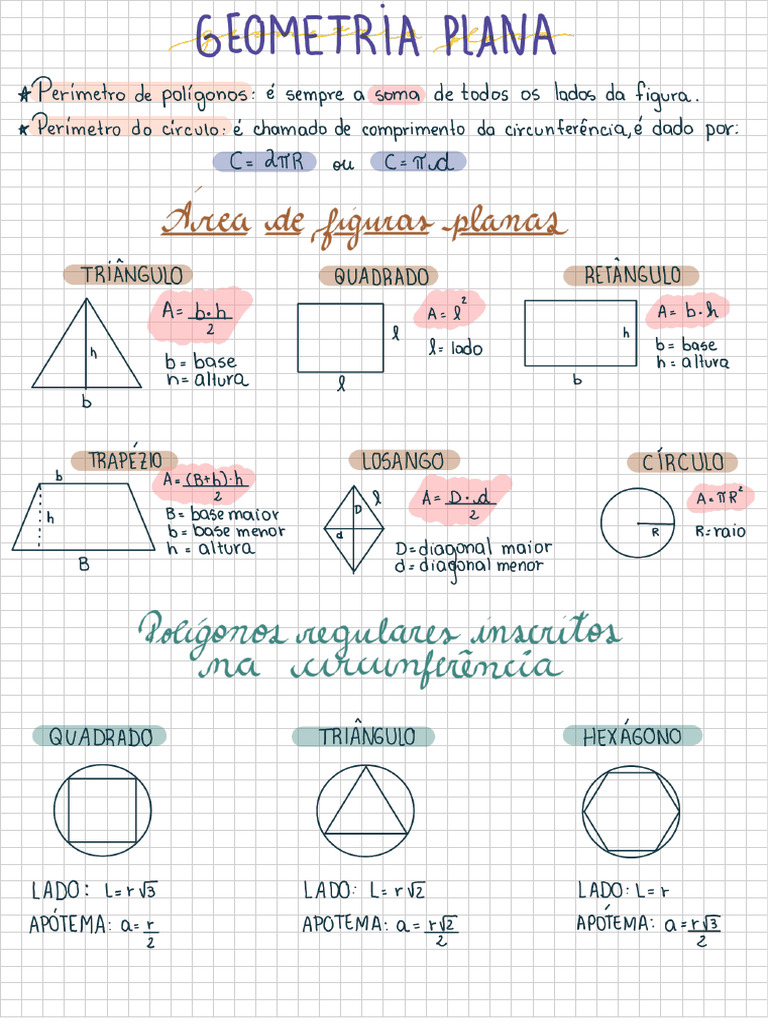 GEOMETRIA PLANA
★ Perímetro de polígonos: é sempre a soma de todos os lados da figura.
★ Perímetro do círculo: é chamado de comprimento da circunferência, é dado por:
C = 2πR ou C = π.d
Área de figuras planas
TRIÂNGULO
A = b.h/2
b = base
h = altura
h
b
QUADRADO
A = l²
l = lado
l
l
RETÂNGULO
A = b.h
b = base
h = altura
h
b
TRAPÉZIO
A = (B+b).h/2
B = base maior
b = base menor
h = altura
b
h
B
LOSANGO
A = D.d/2
D = diagonal maior
d = diagonal menor
l
D
d
CÍRCULO
A = πR²
R = raio
R
Polígonos regulares inscritos
na circunferência
QUADRADO
LADO: L = r√3
APÓTEMA: a = r/2
TRIÂNGULO
LADO: L = r√2
APOTEMA: a = r√2/2
HEXÁGONO
LADO: L = r
APÓTEMA: a = r√3/2